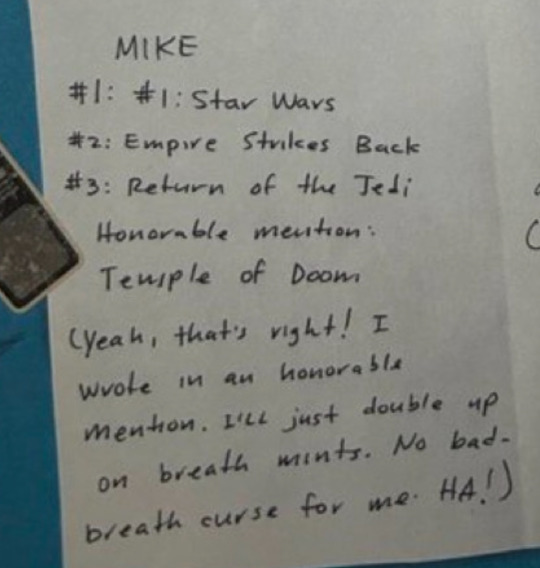 MIKE
#1: #1: Star Wars
#2: Empire Strikes Back
#3: Return of the Jedi
Honorable mention:
Temple of Doom
(Yeah, that's right! I
wrote in an honorable
mention. I'll just double up
on breath mints. No bad-
breath curse for me. HA!)